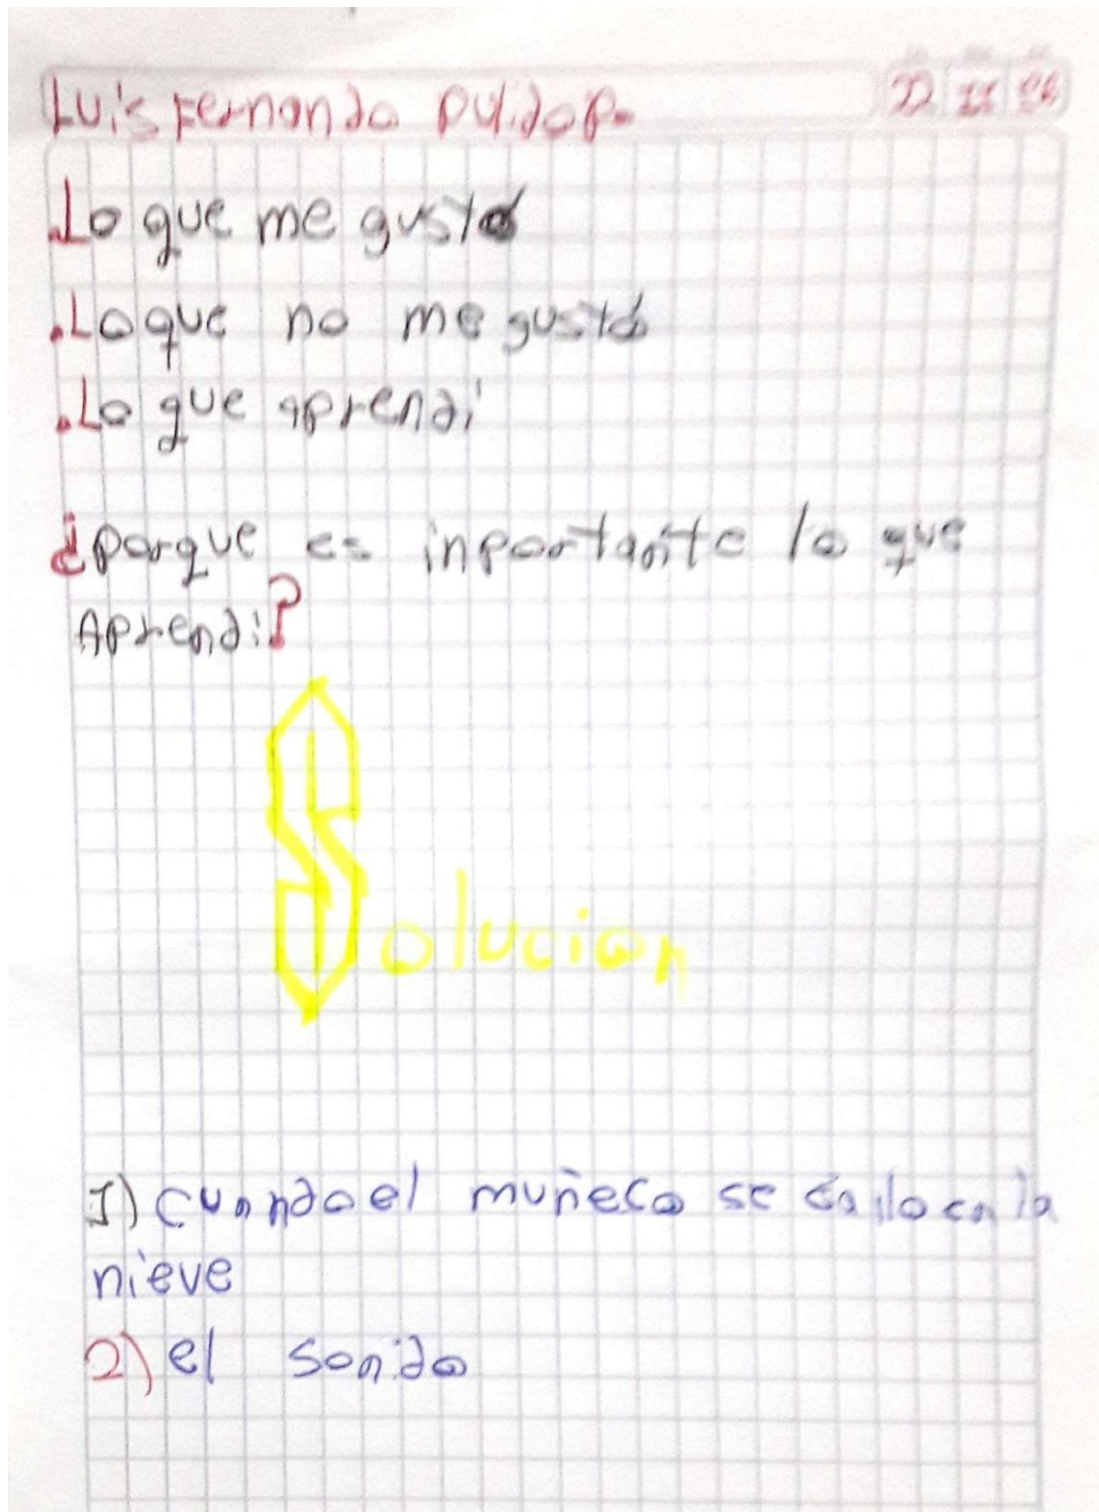 Luis Fernando Pulido P.
.Lo que me gusto
.Lo que no me gustó
.Lo que aprendi
¿porque es inportante lo que
Aprendi?
Solucion
1) cuando el muñeco se calo en la
nieve
2) el sonido